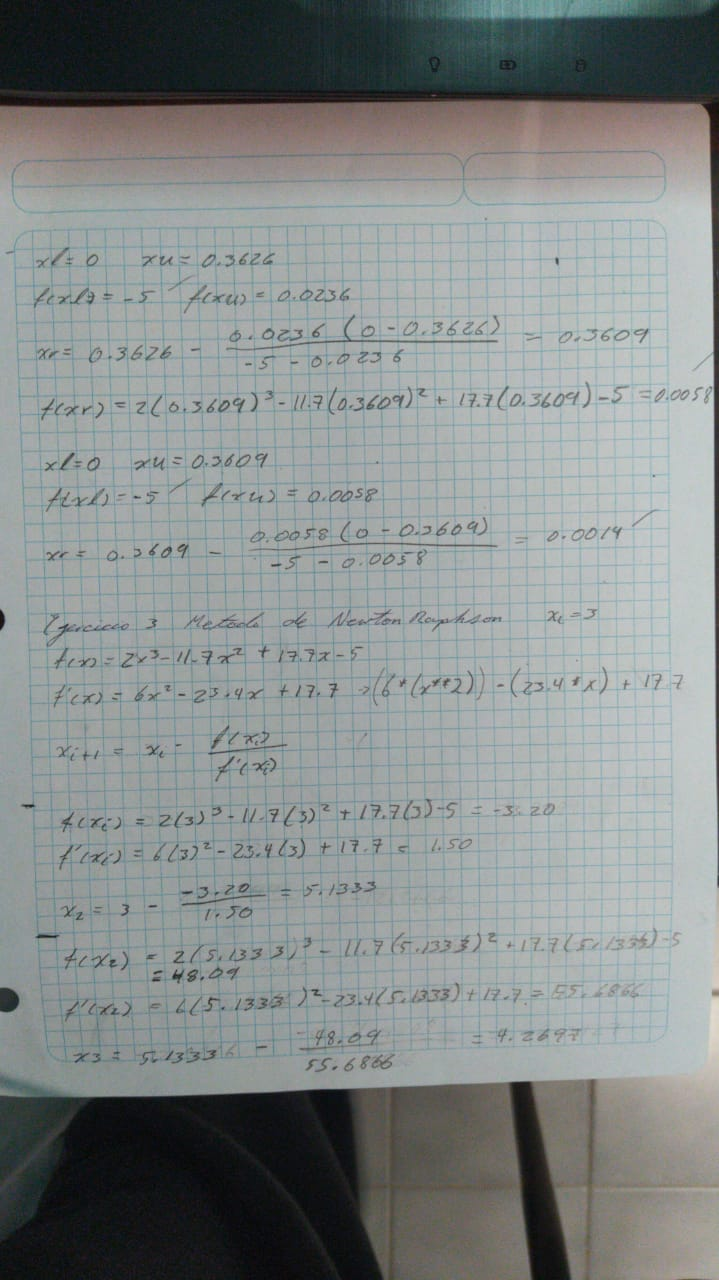 xl = 0 xu = 0.3626
f(xl) = -5 f(xu) = 0.0236
xr = 0.3626 - 0.0236 (0 - 0.3626) / -5 - 0.0236 = 0.3609
f(xr) = 2(0.3609)³ - 11.7(0.3609)² + 17.7(0.3609) - 5 = 0.0058
xl = 0 xu = 0.3609
f(xl) = -5 f(xu) = 0.0058
xr = 0.3609 - 0.0058 (0 - 0.3609) / -5 - 0.0058 = 0.0014
Ejercicio 3 Metodo de Newton Raphson xi = 3
f(x) = 2x³ - 11.7x² + 17.7x - 5
f'(x) = 6x² - 23.4x + 17.7 → (6*(x**2)) - (23.4*x) + 17.7
xi+1 = xi - f(xi) / f'(xi)
f(xi) = 2(3)³ - 11.7(3)² + 17.7(3) - 5 = -3.20
f'(xi) = 6(3)² - 23.4(3) + 17.7 = 1.50
x2 = 3 - -3.20 / 1.50 = 5.1333
f(x2) = 2(5.1333)³ - 11.7(5.1333)² + 17.7(5.1333) - 5
= 48.09
f'(x2) = 6(5.1333)² - 23.4(5.1333) + 17.7 = 55.6866
x3 = 5.1333 - 48.09 / 55.6866 = 4.2697